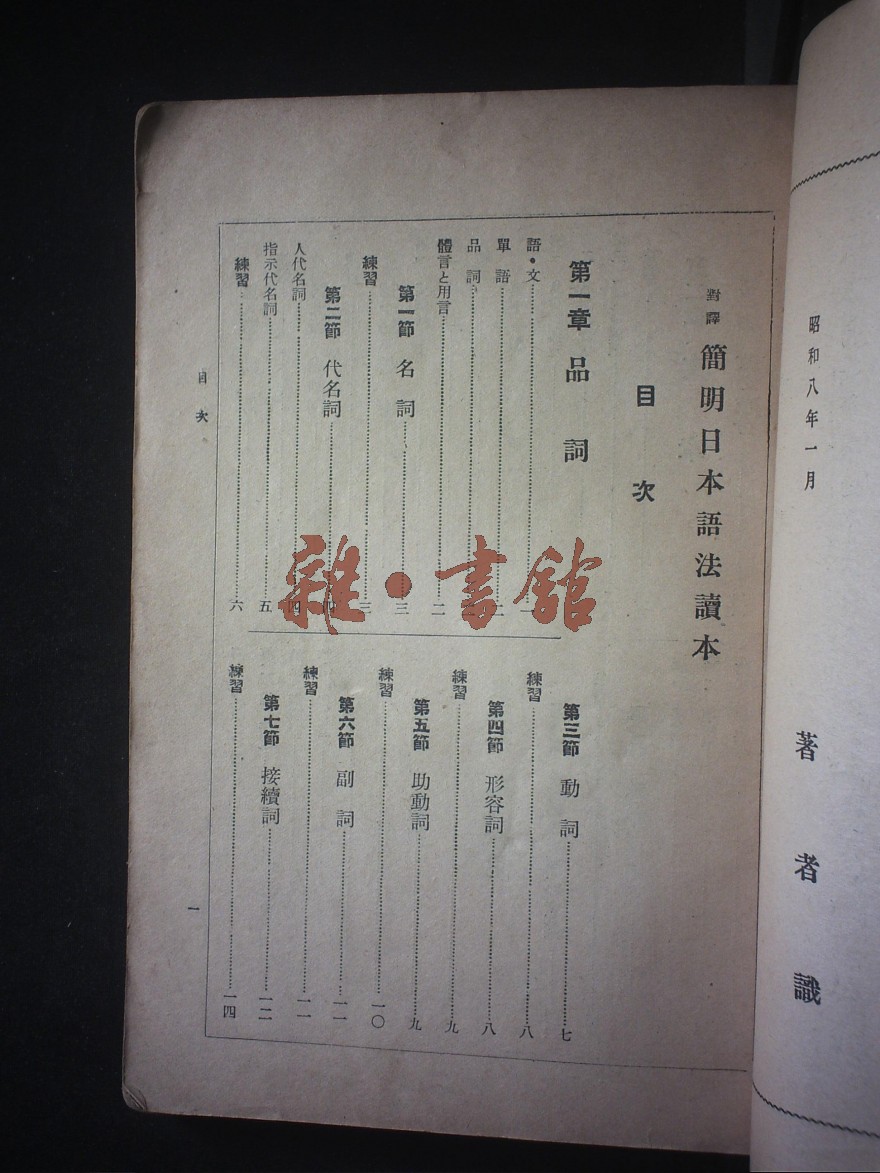 昭和八年一月
著者識
對譯 簡明日本語法讀本
目次
第一章 品詞
語・文……一
單語……
品詞……
體言と用言……二
第一節 名詞……三
練習……三
第二節 代名詞……四
人代名詞……四
指示代名詞……五
練習……六
第三節 動詞……七
練習……八
第四節 形容詞……八
練習……九
第五節 助動詞……九
練習……一〇
第六節 副詞……一一
練習……一一
第七節 接續詞……一二
練習……一四
目次
一
雜・書館